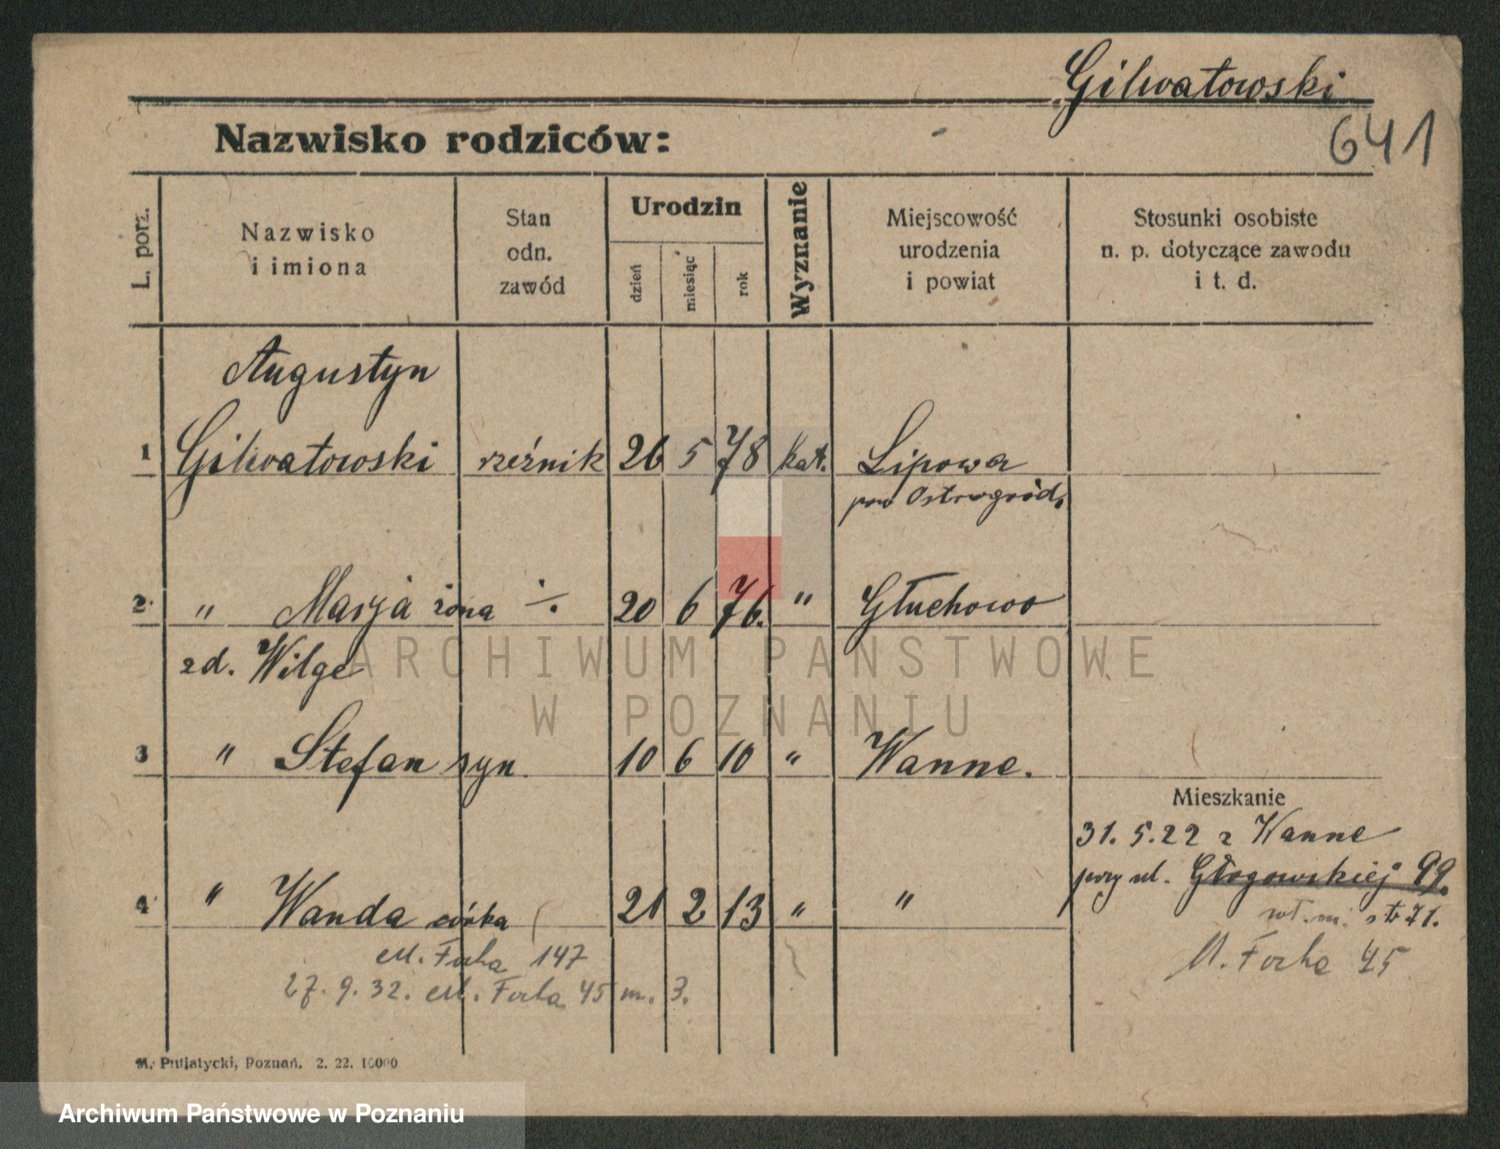 Gilwatowski
641
Nazwisko rodziców:
L. porz.
Nazwisko
i imiona
Stan
odn.
zawód
Urodzin
dzień
miesiąc
rok
Wyznanie
Miejscowość
urodzenia
i powiat
Stosunki osobiste
n. p. dotyczące zawodu
i t. d.
Augustyn
1 Gilwatowski rzeźnik 26 5 78 kat. Lipowa
pow Ostrogród,
2 " Marja żona ./. 20 6 76. " Głuchowo
zd. Wilge
3 " Stefan syn. 10 6 10 " Wanne.
Mieszkanie
31. 5. 22 z Wanne
przy ul. Głogowskiej 99.
4 " Wanda córka 21 2 13 " "
71.
M. Focha 45
M. Focha 147
27. 9. 32. M. Focha 45 m. 3.
M. Putiatycki, Poznań. 2. 22. 10000
ARCHIWUM PAŃSTWOWE
W POZNANIU
Archiwum Państwowe w Poznaniu